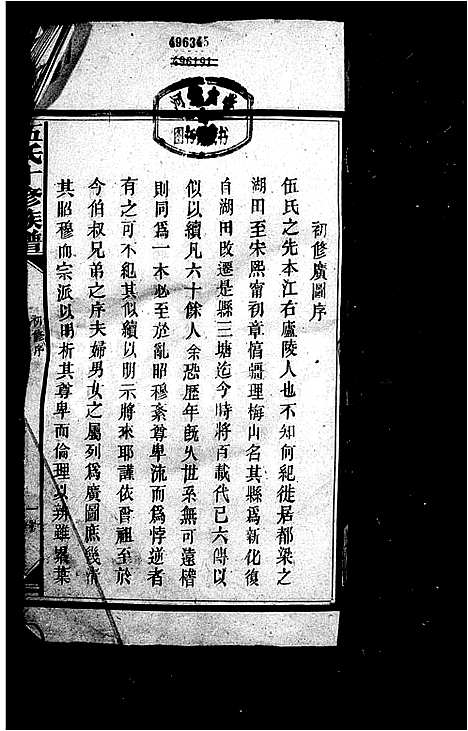 496345
496191
初修廣圖序
伍氏之先本江右廬陵人也不知何紀徙居都梁之
湖田至宋熙甯初章惇疆理梅山名其縣爲新化復
自湖田改遷是縣三塘迄今時將百載代已六傳以
似以續凡六十餘人余恐歷年旣久世系無可遠稽
則同爲一本必至於亂昭穆紊尊卑流而爲悖逆者
有之可不紀其似續以明示將來耶謹依晉祖至於
今伯叔兄弟之序夫婦男女之屬列爲廣圖庶幾情
其昭穆而宗派以明析其尊卑而倫理以辨雖累葉
伍氏十修族譜
初修序